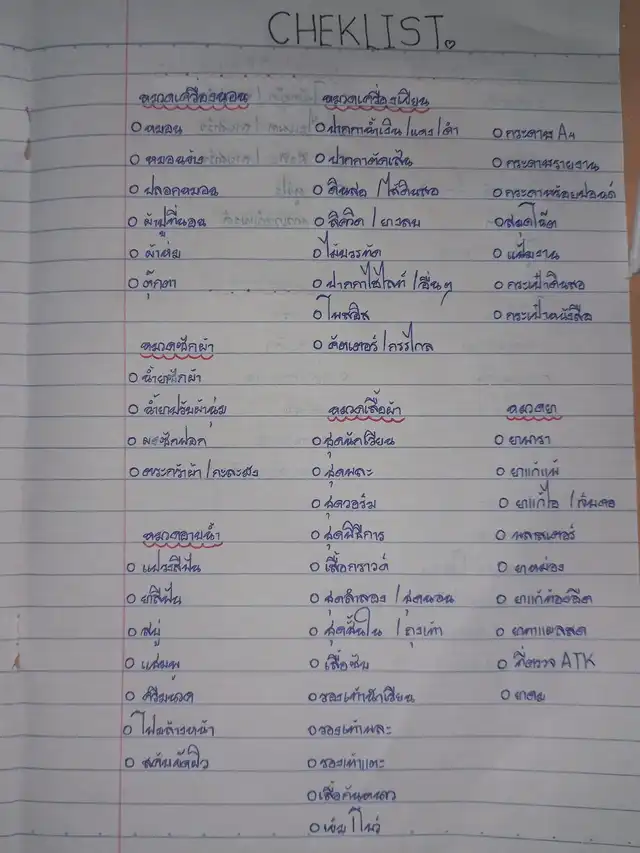 CHEKLIST.
หมวดเครื่องนอน
O หมอน
O หมอนข้าง
O ปลอกหมอน
O ผ้าปูที่นอน
O ผ้าห่ม
O ตุ๊กตา
หมวดซักผ้า
O น้ำยาซักผ้า
O น้ำยาปรับผ้านุ่ม
O ผงซักฟอก
O ตระกร้าผ้า / กะละมัง
หมวดอาบน้ำ
O แปรงสีฟัน
O ยาสีฟัน
O สบู่
O แชมพู
O ครีมนวด
O โฟมล้างหน้า
O สครับขัดผิว
หมวดเครื่องเขียน
O ปากกาน้ำเงิน / แดง / ดำ
O ปากกาตัดเส้น
O ดินสอ / ไส้ดินสอ
O ลิควิด / ยางลบ
O ไม้บรรทัด
O ปากกาไฮไลท์ / อื่นๆ
O โพสอิส
O คัตเตอร์ / กรรไกล
O กระดาษ A4
O กระดาษรายงาน
O กระดาษร้อยปอนด์
O สมุดโน๊ต
O แฟ้มงาน
O กระเป๋าดินสอ
O กระเป๋าหนังสือ
หมวดเสื้อผ้า
O ชุดนักเรียน
O ชุดพละ
O ชุดวอร์ม
O ชุดพิธีการ
O เสื้อกราวด์
O ชุดลำลอง / ชุดนอน
O ชุดชั้นใน / ถุงเท้า
O เสื้อซับ
O รองเท้านักเรียน
O รองเท้าพละ
O รองเท้าแตะ
O เสื้อกันหนาว
O เข็ม / โบว์
หมวดยา
O ยาพารา
O ยาแก้แพ้
O ยาแก้ไอ / เจ็บคอ
O พลาสเตอร์
O ยาหม่อง
O ยาแก้ท้องอืด
O ยาทาแผลสด
O ที่ตรวจ ATK
O ยาดม